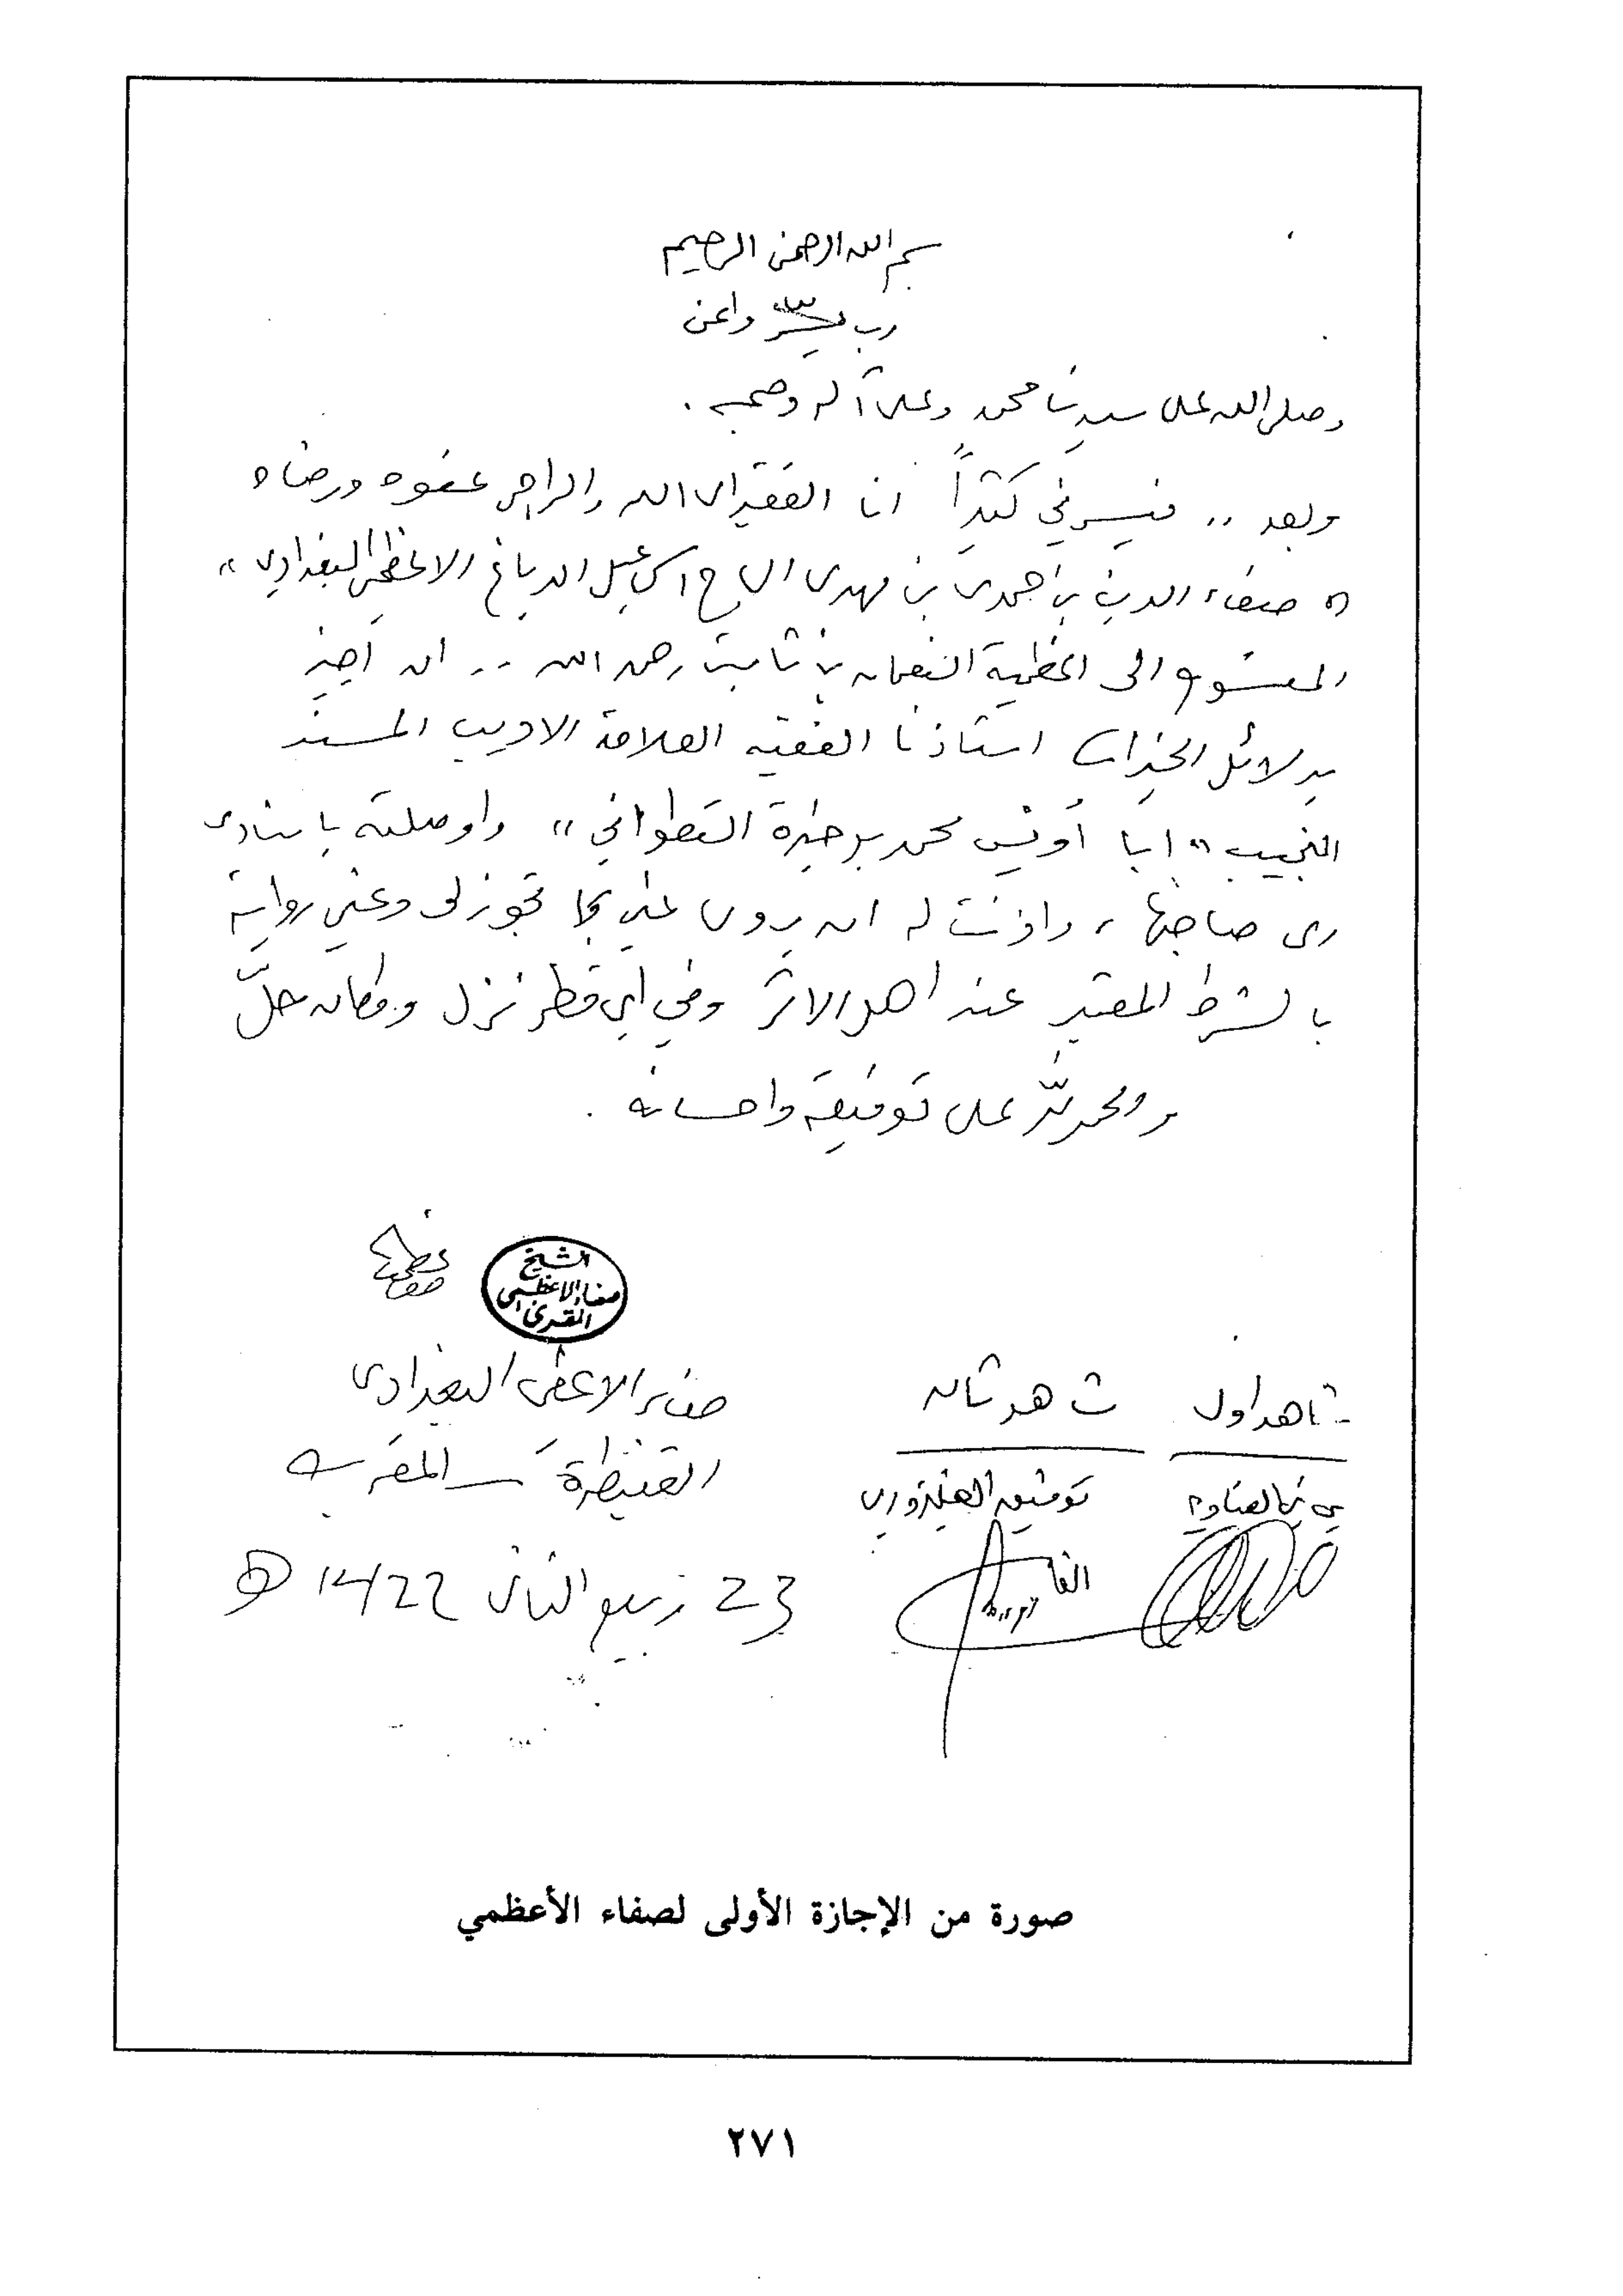 بسم الله الرحمن الرحيم
رب يسّر واعن
وصلى الله على سيدنا محمد وعلى آله وصحبه .
وبعد .. فيسرني كثيراً انا الفقير الى الله والراجي عفوه ورضاه
" صفاء الدين بن حمدي بن مهدي الحاج اسماعيل الدباغ الاعظمي البغدادي "
المنسوب الى اعظمية النعمان بن ثابت رحمه الله .. ان اجيز
بدلائل الخيرات استاذنا الفقيه العلامة الاديب المسند
النجيب " ابا أويس محمد بوخبزة التطواني " واوصلته باسنادي
الى صاحبها ، واذنت له ان يروي عني بما تجوز لي وعني روايته
بالشرط المعتبر عند اهل الاثر وفي اي قطر نزل ومكان حلّ
والحمد لله على توفيقه واحسانه .
الشيخ
صفاء الاعظمي
المقرئ
صفاء الاعظمي البغدادي
القنيطرة – المغرب
23 ربيع الثاني 1422 هـ
شاهد اول
شاهد ثان
توفيق الغلبزوري
صورة من الإجازة الأولى لصفاء الأعظمي
٢٧١